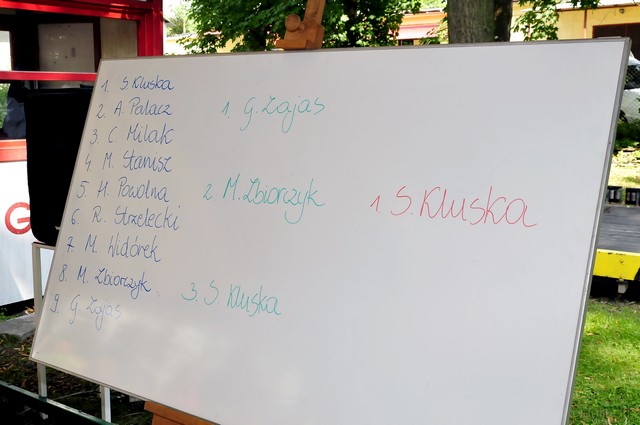 1. S Kluska
2. A. Palacz
3. C. Milak
4. M. Stanisz
5. H. Powolna
6. R. Strzelecki
7. M. Widórek
8. M. Zbiorczyk
9. G. Zajas
1. G. Zajas
2 M. Zbiorczyk
3. S. Kluska
1 S. Kluska
G